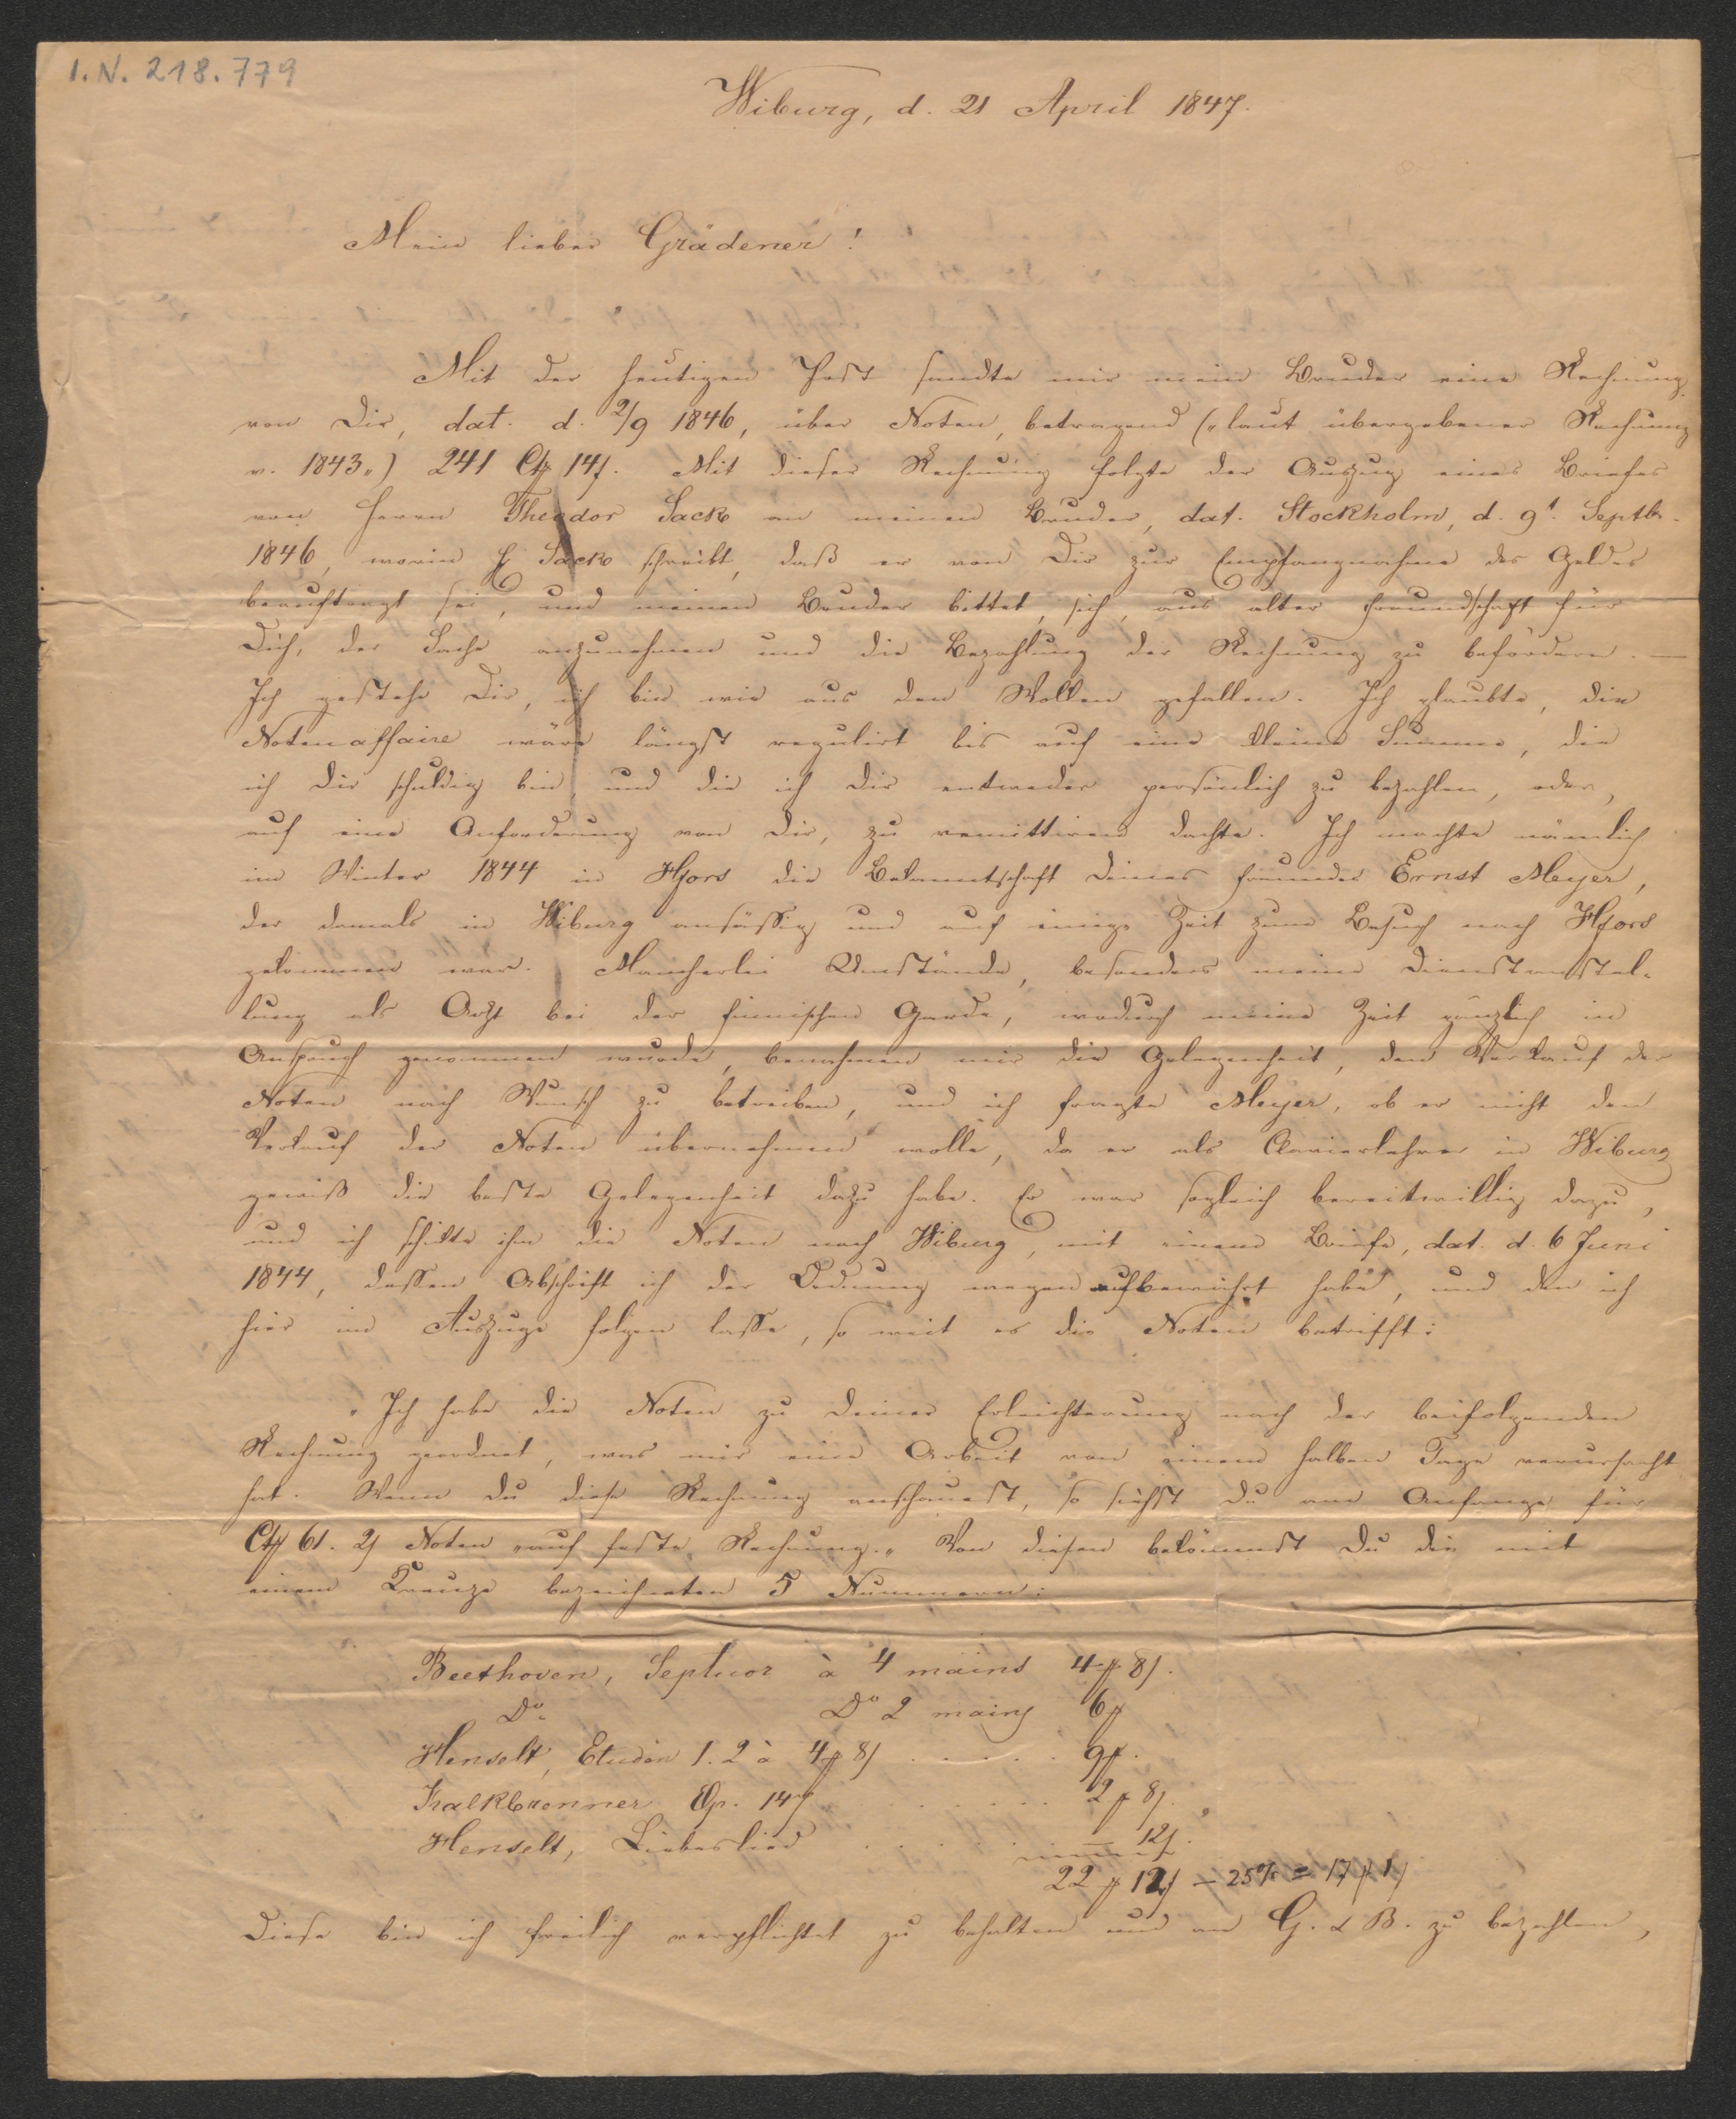 I.N. 218.779
Wiburg, d. 21 April 1847.
Mein lieber Grädener!
Mit der heutigen Post sandte mir mein Bruder eine Rechnung
von Dir, dat. d. 2/9 1846, über Noten, betragend („laut übergebener Rechnung
v. 1843„) 241 C 14 . Mit dieser Rechnung folgte der Auszug eines Briefes
von Herrn Theodor Sack an meinen Bruder, dat. Stockholm, d. 9t. Septbr.
1846, worin H Sack schreibt, daß er von Dir zur Empfangnahme des Geldes
beauftragt sei, und meinen Bruder bittet, sich, aus alter Freundschaft für
Dich, der Sache anzunehmen und die Bezahlung der Rechnung zu befördern. —
Ich gestehe Dir, ich bin wie aus den Wolken gefallen. Ich glaubte, die
Notenaffaire wäre längst regulirt bis auf eine kleine Summe, die
ich Dir schuldig bin, und die ich Dir entweder persönlich zu bezahlen, oder,
auf eine Anforderung von Dir, zu remittiren dachte. Ich machte nämlich
im Winter 1844 in Hfors die Bekanntschaft Deines Freundes Ernst Meyer,
der damals in Wiburg ansäßig und auf einige Zeit zum Besuch nach Hfors
gekommen war. Mancherlei Umstände, besonders meine Dienstanstel-
lung als Arzt bei der finnischen Garde, wodurch meine Zeit gänzlich in
Anspruch genommen wurde, benahmen mir die Gelegenheit, den Verkauf der
Noten nach Wunsch zu betreiben, und ich fragte Meyer, ob er nicht den
Verkauf der Noten übernehmen wolle, da er als Clavierlehrer in Wiburg
gewiß die beste Gelegenheit dazu habe. Er war sogleich bereitwillig dazu,
und ich schickte ihm die Noten nach Wiburg, mit einem Briefe, dat. d. 6 Juni
1844, dessen Abschrift ich der Ordnung wegen aufbewahrt habe, und den ich
hier im Auszuge folgen lasse, so weit es die Noten betrifft:
„Ich habe die Noten zu Deiner Erleichterung nach der beifolgenden
Rechnung geordnet, was mir eine Arbeit von einem halben Tage verursacht
hat. Wenn Du diese Rechnung anschauest, so siehst Du am Anfange für
C 61. 2 Noten „auf feste Rechnung.„ Von diesen bekömmst Du die mit
einem Kreuze bezeichneten 5 Nummern:
Beethoven, Septuor à 4 mains 4 8 .
Do. Do 2 mains 6
Henselt, Etuden 1. 2 à 4 8 . . . . . . 9 .
Kalkbrenner Op. 147 . . . . . . 2 8 .
Henselt, Liebeslied . . . . . . — 12 .
22 12 — 25% = 17 1
Diese bin ich freilich verpflichtet zu behalten und an G. & B. zu bezahlen,